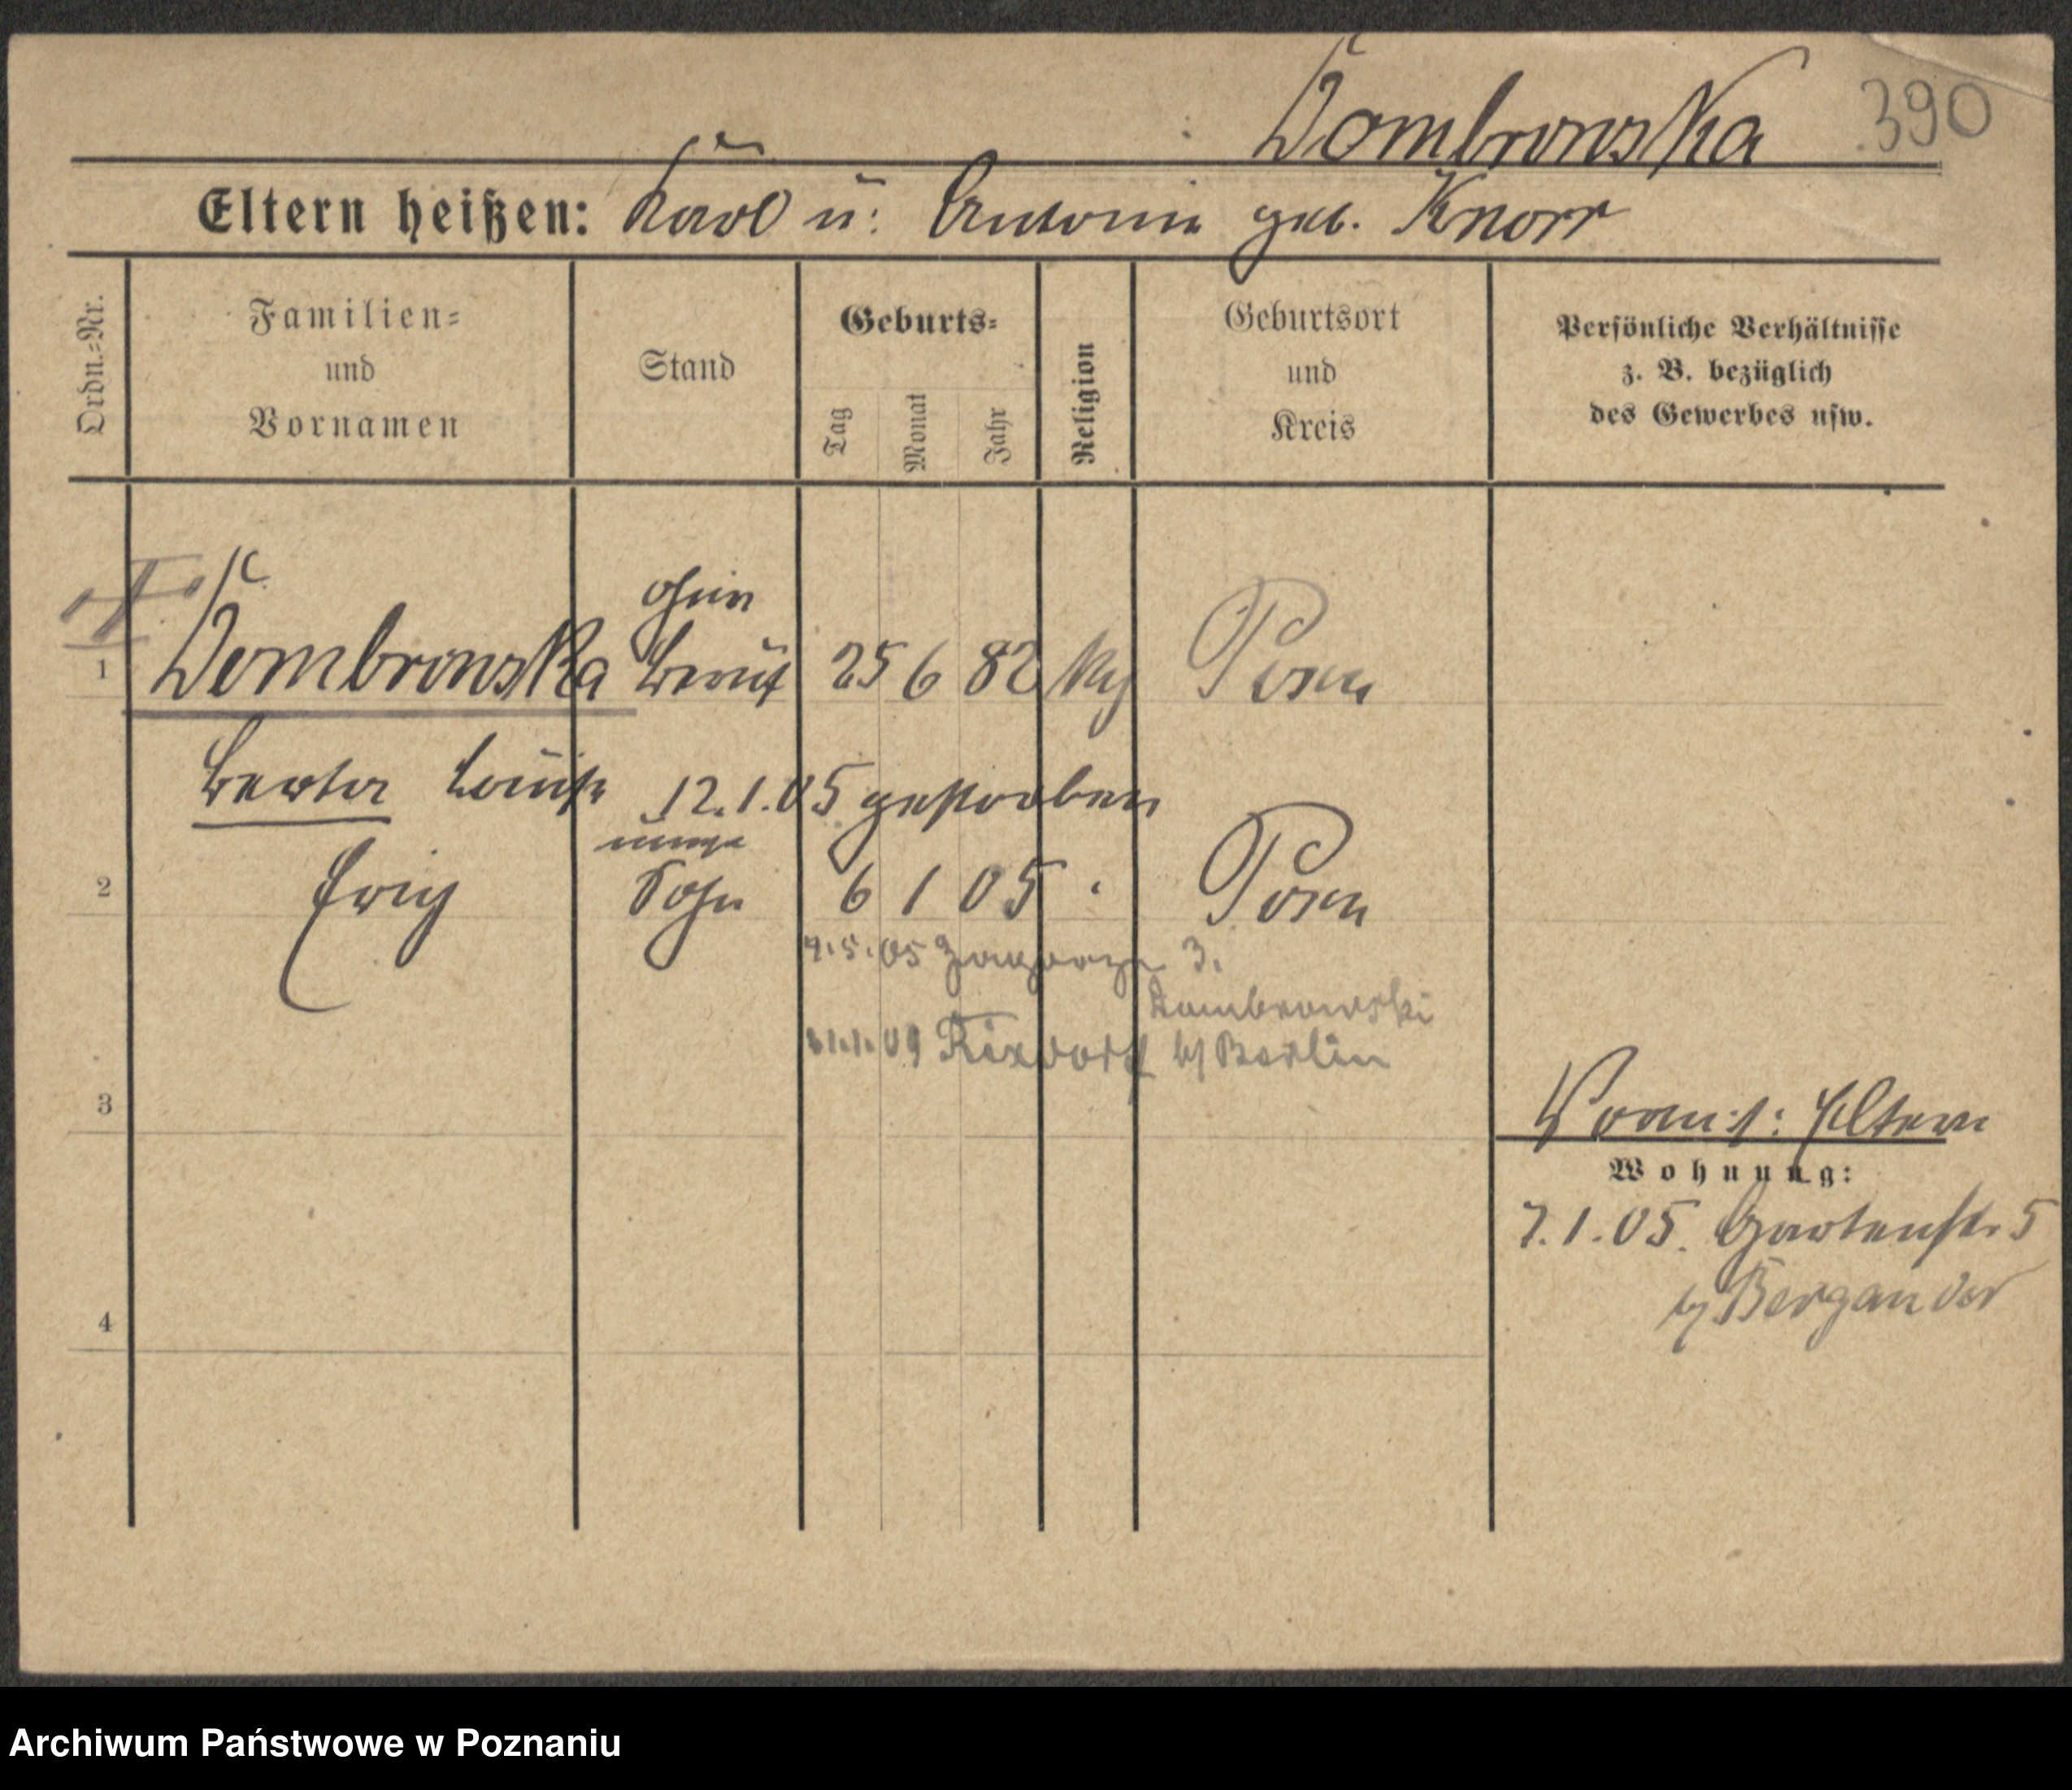 Dombrowska 390
Eltern heißen: Karl u: Antonie geb. Knorr
Ordn.=Nr.
Familien=
und
Vornamen
Stand
Geburts=
Tag
Monat
Jahr
Religion
Geburtsort
und
Kreis
Persönliche Verhältnisse
z. B. bezüglich
des Gewerbes usw.
ohne
1 Dombrowska Beruf 25 6 82 Posen
Berta Luise 12.1.05 gestorben
2 Sohn 6 1 05 Posen
9.5.05 3.
Dombrowski
09 Rixdorf b/ Berlin
3 Eltern
Wohnung:
7.1.05. Gartenstr 5
b/ Bergander
4
Archiwum Państwowe w Poznaniu